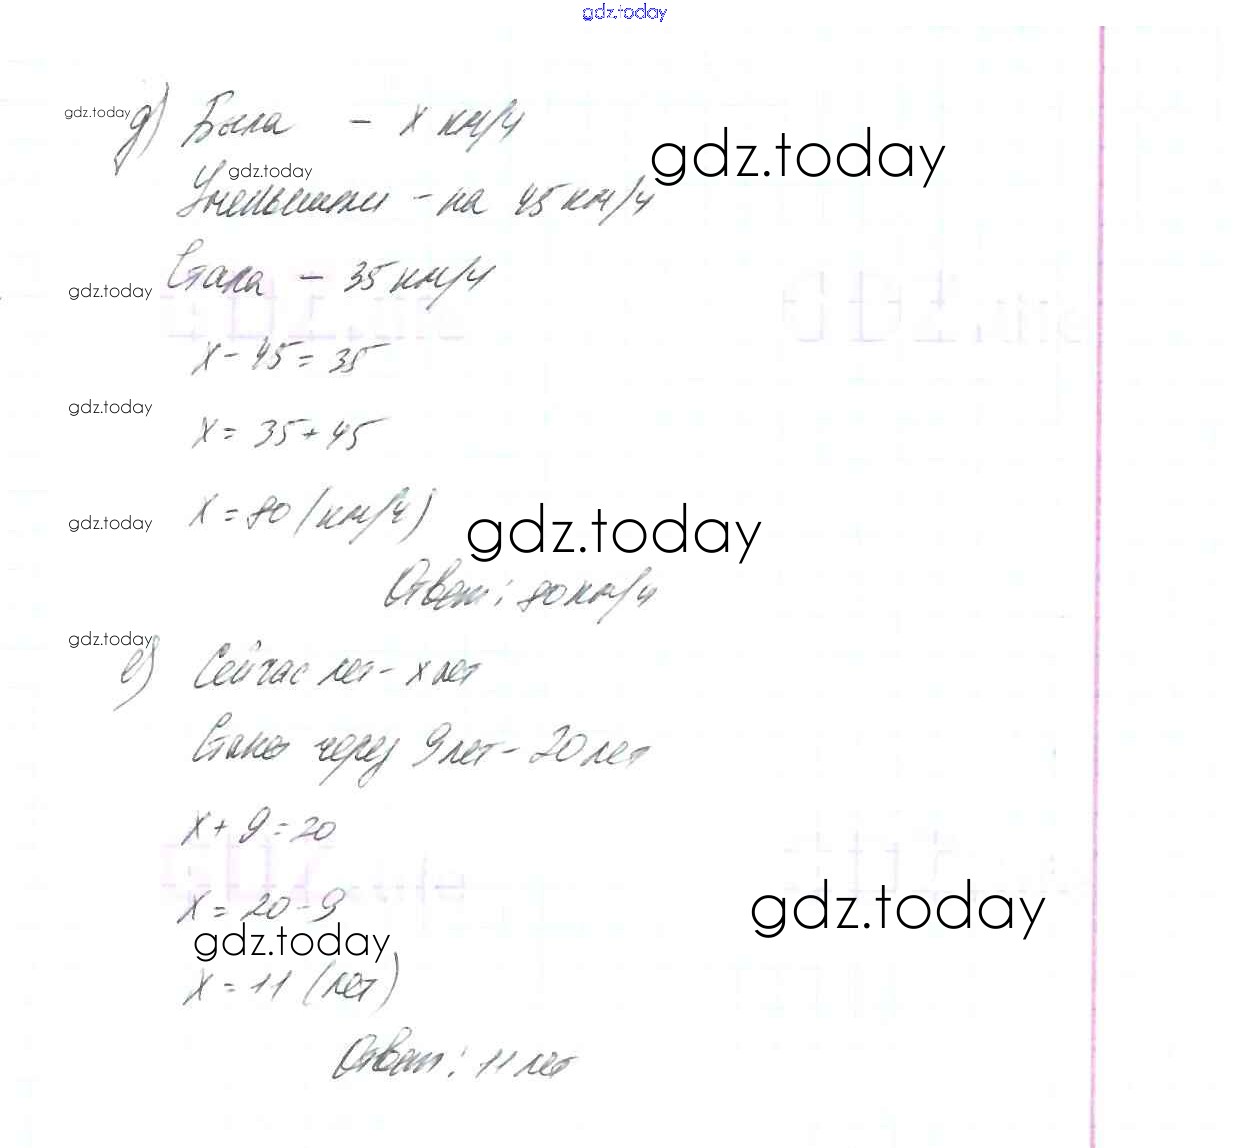 gdz.today
gdz.today
д) Была - х км/ч
gdz.today
gdz.today
Уменьшили - на 45 км/ч
Стала - 35 км/ч
gdz.today
х - 45 = 35
gdz.today
х = 35 + 45
gdz.today
х = 80 (км/ч)
gdz.today
Ответ: 80 км/ч
gdz.today
е) Сейчас лет - х лет
Станет через 9 лет - 20 лет
х + 9 = 20
х = 20 - 9
gdz.today
gdz.today
х = 11 (лет)
Ответ: 11 лет